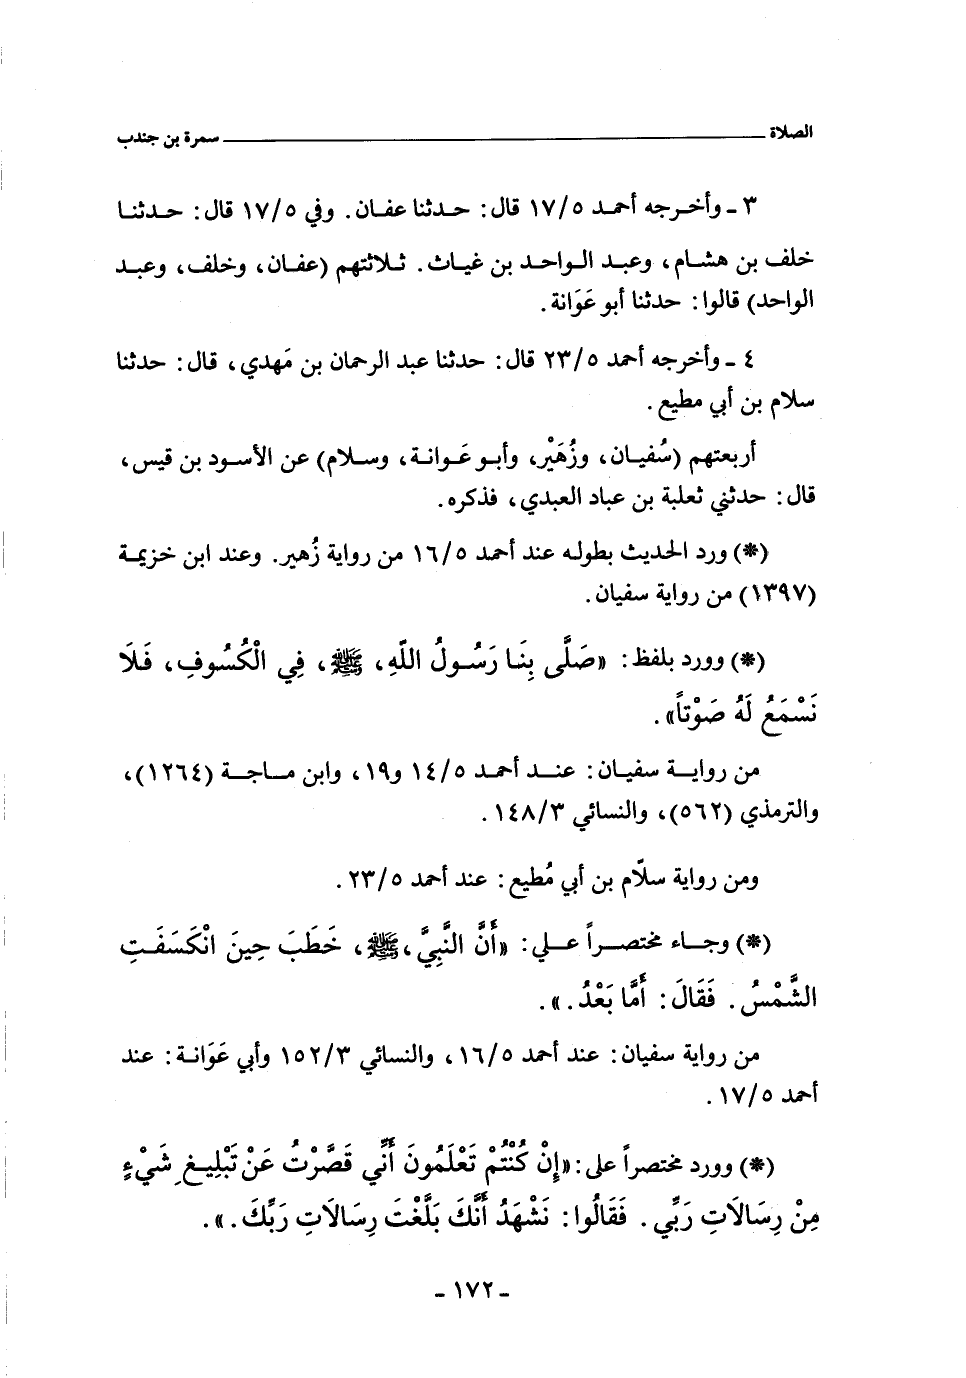 الصلاة ــــــ سمرة بن جندب
٣ ـ وأخرجه أحمد ١٧/٥ قال: حدثنا عفان. وفي ١٧/٥ قال: حدثنا
خلف بن هشام، وعبد الواحد بن غياث. ثلاثتهم (عفان، وخلف، وعبد
الواحد) قالوا: حدثنا أبو عَوَانة.
٤ ـ وأخرجه أحمد ٢٣/٥ قال: حدثنا عبد الرحمان بن مَهدي، قال: حدثنا
سلام بن أبي مطيع.
أربعتهم (سُفيان، وزُهَيْر، وأبو عَوانة، وسلام) عن الأسود بن قيس،
قال: حدثني ثعلبة بن عباد العبدي، فذكره.
(*) ورد الحديث بطوله عند أحمد ١٦/٥ من رواية زُهير. وعند ابن خزيمة
(١٣٩٧) من رواية سفيان.
(*) وورد بلفظ: «صَلَّى بِنَا رَسُولُ اللّهِ، ﷺ، فِي الْكُسُوفِ، فَلَا
نَسْمَعُ لَهُ صَوْتاً».
من رواية سفيان: عند أحمد ١٤/٥ و١٩، وابن ماجة (١٢٦٤)،
والترمذي (٥٦٢)، والنسائي ١٤٨/٣.
ومن رواية سلّام بن أبي مُطيع: عند أحمد ٢٣/٥.
(*) وجاء مختصراً علي: «أَنَّ النَّبِيَّ، ﷺ، خَطَبَ حِينَ انْكَسَفَتِ
الشَّمْسُ. فَقَالَ: أَمَّا بَعْدُ.».
من رواية سفيان: عند أحمد ١٦/٥، والنسائي ١٥٢/٣ وأبي عَوَانة: عند
أحمد ١٧/٥.
(*) وورد مختصراً على: «إِنْ كُنْتُمْ تَعْلَمُونَ أَنِّي قَصَّرْتُ عَنْ تَبْلِيغِ شَيْءٍ
مِنْ رِسَالَاتِ رَبِّي. فَقَالُوا: نَشْهَدُ أَنَّكَ بَلَّغْتَ رِسَالَاتِ رَبِّكَ.».
- ١٧٢ -